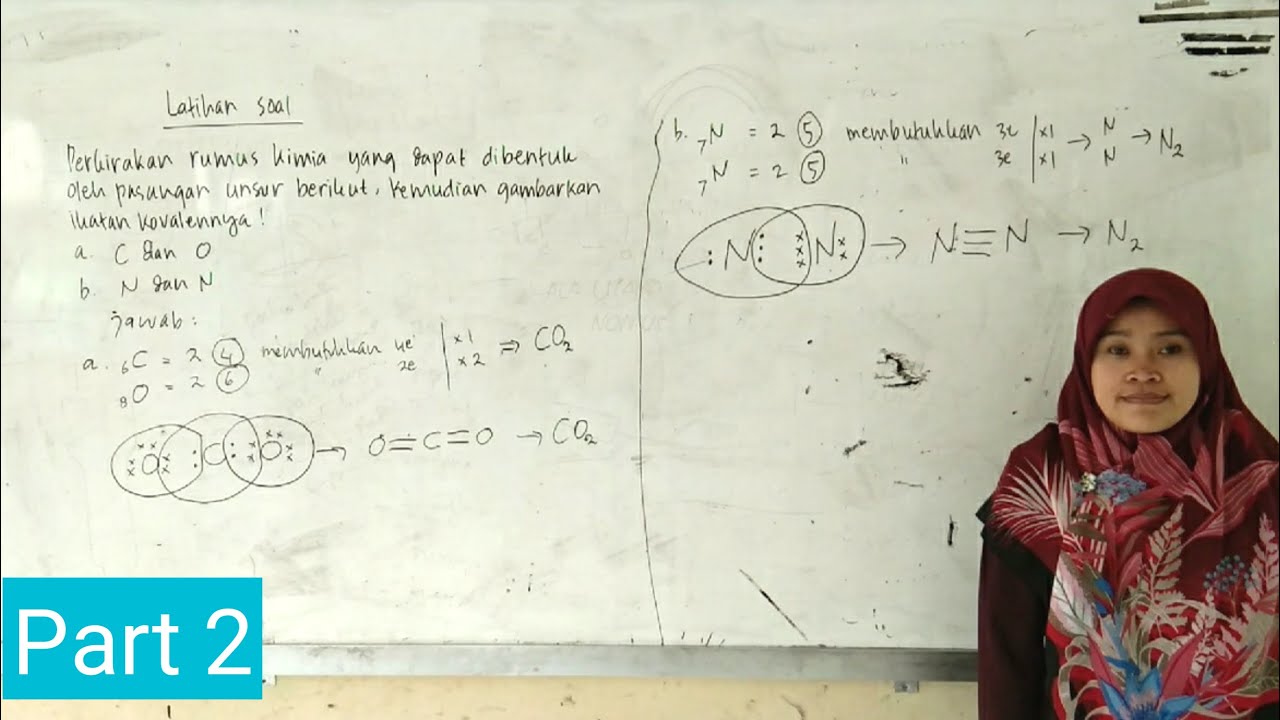 Latihan soal
Perkirakan rumus kimia yang dapat dibentuk
oleh pasangan unsur berikut, kemudian gambarkan
ikatan kovalennya!
a. C dan O
b. N dan N
Jawab:
a. ₆C = 2 4 membutuhkan 4e | x1 ⇒ CO₂
₈O = 2 6 " 2e | x2
O C O → O=C=O → CO₂
b. ₇N = 2 5 membutuhkan 3e | x1 → N → N₂
₇N = 2 5 " 3e | x1 N
:N N → N≡N → N₂
Part 2